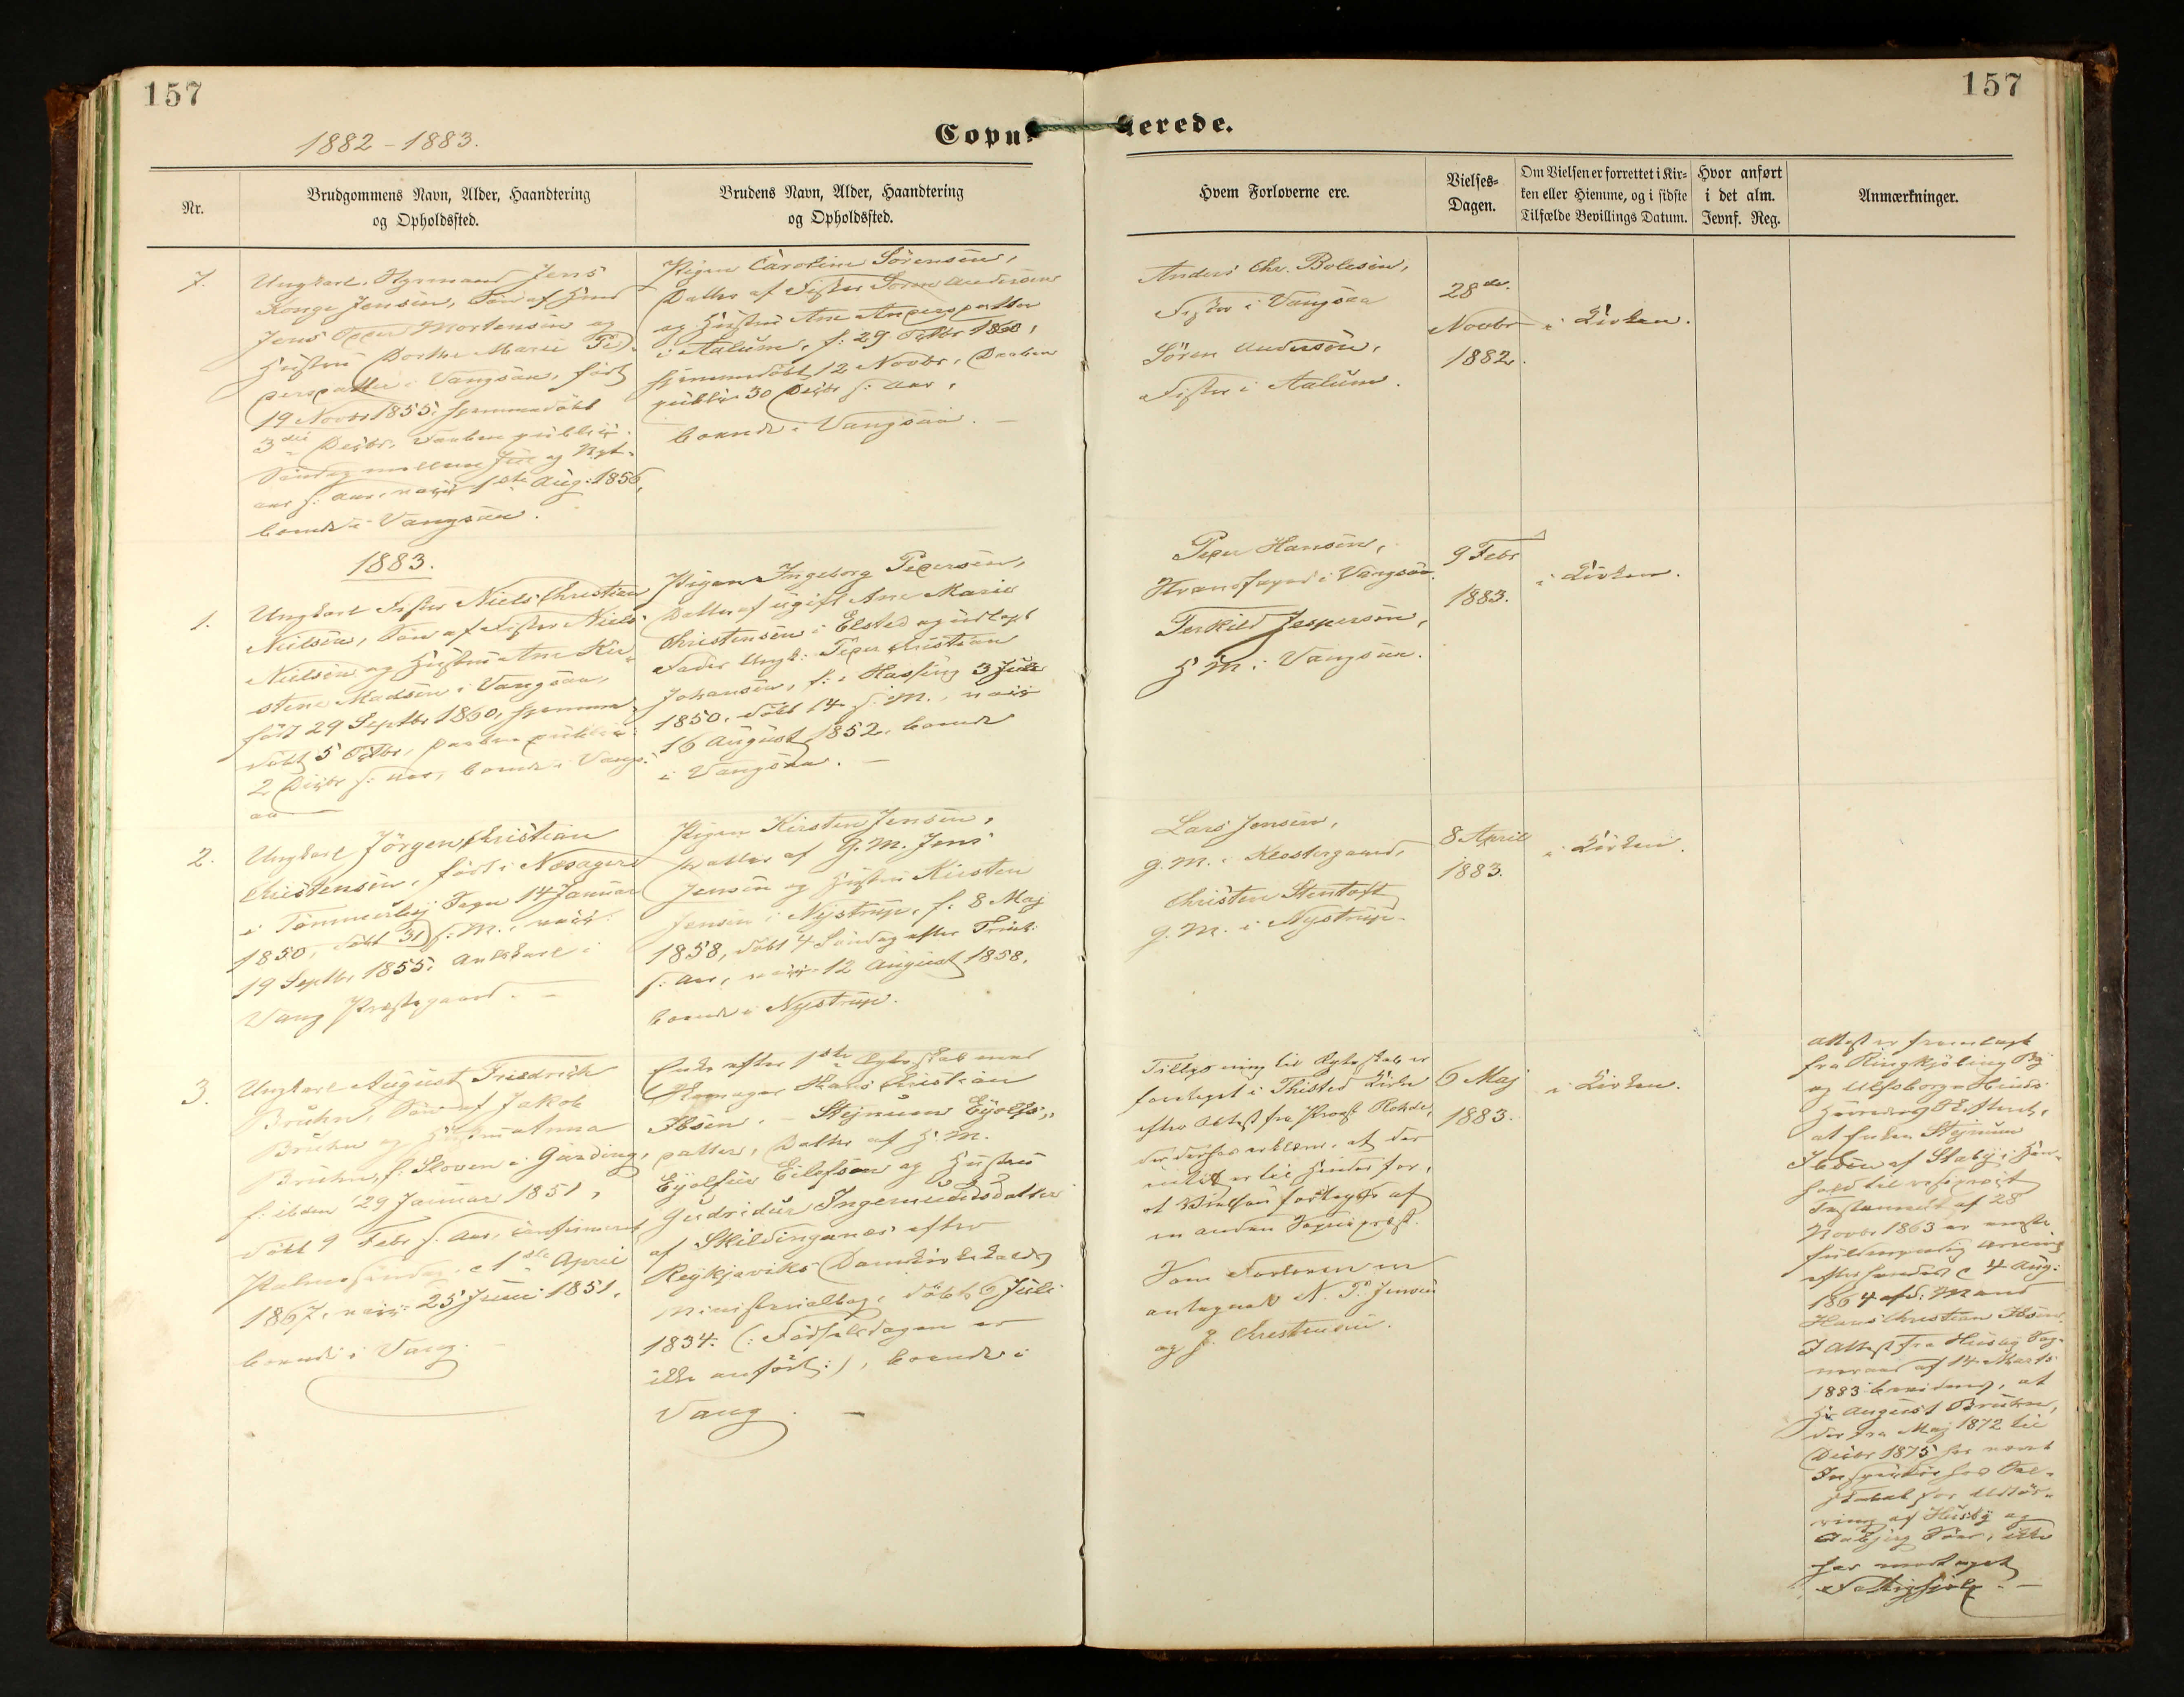 157
157
1882-1883.
Copulerede.
Nr.
Brudgommens Navn, Alder, Haandtering
og Opholdssted.
Brudens Navn, Alder, Haandtering
og Opholdssted.
Hvem Forloverne ere.
Vielses-
Dagen.
Om Vielsen er forrettet i Kir-
ken eller Hjemme, og i sidste
Tilfælde Bevillings Datum.
Hvor anført
i det alm.
Jevnf. Reg.
Anmærkninger.
7.
Ungkarl, Jens
Konge Jensen, Søn af
Jens Peder Mortensen og
Hustru Dorthe Marie Pe-
dersdatter i Vangsaa, født
19 Novbr 1855, hjemmedøbt
3die Decbr, Daaben public.
Søndag mellem Juul og Nyt-
aar s: Aar, vacc: 1ste Aug: 1856,
boende i Vangsaa.
Pigen Caroline Sørensen,
Datter af Fisker Søren Andersen
og Hustru Ane Andersdatter
i Aalum, f: 29 Octbr 1860,
hjemmedøbt 12 Novbr, Daaben
public. 30 Decbr s: Aar,
boende i Vangsaa. -
Anders Chr. Bolesen,
Fisker i Vangsaa
Søren Andersen,
Fisker i Aalum.
28de
Novbr
1882.
i Kirken.
1883.
1.
Ungkarl Fisker Niels Christian
Nielsen, Søn af Fisker Niels
Nielsen og Hustru Ane Kir-
stine Madsen i Vangsaa,
født 29 Septbr 1860, hjemme-
døbt 5 Octbr, Daaben public:
2 Decbr s: Aar, boende i Vangs-
aa
Pigen Ingeborg Pedersen,
Datter af ugift Ane Marie
Christensen i Elsted og udlagt
Fader Ungk: Peder Christian
Johansen, f: i Hassing 3 Juli
1850, døbt 14 s: M., vacc
16 August 1852, boende
i Vangsaa. -
Peder Hansen,
Strandfoged i Vangsaa.
Terkild Jespersen,
H. M. i Vangsaa.
9 Febr
1883.
i Kirken.
2.
Ungkarl Jörgen Christian
Christensen, født i Næsager
i Tømmerby Sogn 14 Januar
1850, døbt 31 s: M., vacc:
19 Septbr 1855. Avlskarl i
Vang Præstegaard. -
Pigen Kirsten Jensen,
Datter af G. M. Jens
Jensen og Hustru Kirsten
Jensen i Nystrup, f: 8 Maj
1858, døbt 4 Søndag efter Trinit:
s: Aar, vacc. 12 August 1858,
boende i Nystrup.
Lars Jensen,
G. M. i Klostergaard,
Christen Stentoft
G. M. i Nystrup.
8 April
1883.
i Kirken.
3.
Ungkarl August Friedrich
Bruhn, Søn af Jakob
Bruhn og Hustru Anna
Bruhn, f: Sloven i Garding,
f: ibidem 29 Januar 1851,
døbt 9 Febr s: Aar, confirmeret
Palmesøndag, 1ste April
1867, vacc: 25 Juni 1851,
boende i Vang. -
Enke efter 1ste Ægteskab med
Hans Christian
Ibsen. - Stejnunn Eyolfs-
datter, Datter af H. M.
Eyolfur Eilefsen og Hustru
Gudridur Ingemundsdatter
af Skildinganæs efter
Reykjaviks Domkirkekalds
Ministerialbog, døbt 6 Juli
1834. (: Fødselsdagen er
ikke anført:), boende i
Vang. -
Tillysning til Ægteskab er
foretaget i Thisted Kirke
efter Attest fra Provst Rohde,
der derhos erklærer, at der
intet er til Hinder for,
at Vielsen foretages af
en anden Sognepræst.
Som Forlovere ere
antagne N. P. Jensen
og J. Christensen.
6 Maj
1883.
i Kirken.
Attest er fremlagt
fra Ringkjöbing By
og Ulfborg Hinds
Herreders Skifteret,
at Enken Stejnunn
Ibsen af Staby i Hen-
hold til reciprokt
Testament af 28
Novbr 1863 er eneste
fuldmyndig Arving
efter hendes 4 Aug:
1864 afd: Mand
Hans Christian Ibsen.
I Attest fra Husby Sog-
neraad af 14 Marts
1883 bevidnes, at
Hr August Bruhn,
der fra Maj 1872 til
Decbr 1875 har været
Inspektør hos Sel-
skabet for Udtør-
ring af Husby og
Søer, ikke
har modtaget
Fattighjælp. -